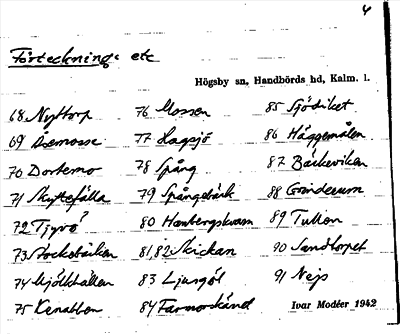 4
Förteckning etc
Högsby sn, Handbörds hd, Kalm. l.
68 Nyttorp 76 Mossen 85 Sjödiket
69 Åsemosse 77 Lagsjö 86 Häggemålen
70 Dortemo 78 Spång 87 Bäckeviken
71 Skyttefälla 79 Spångebäck 88 Grindeum
72 Tjyvö? 80 89 Tullen
73 Stocksbäcken 81,82 Skickan 90 Sandtorpet
74 Mjölkhällen 83 Ljusgöl 91 Nejs
75 84
Ivar Modéer 1942